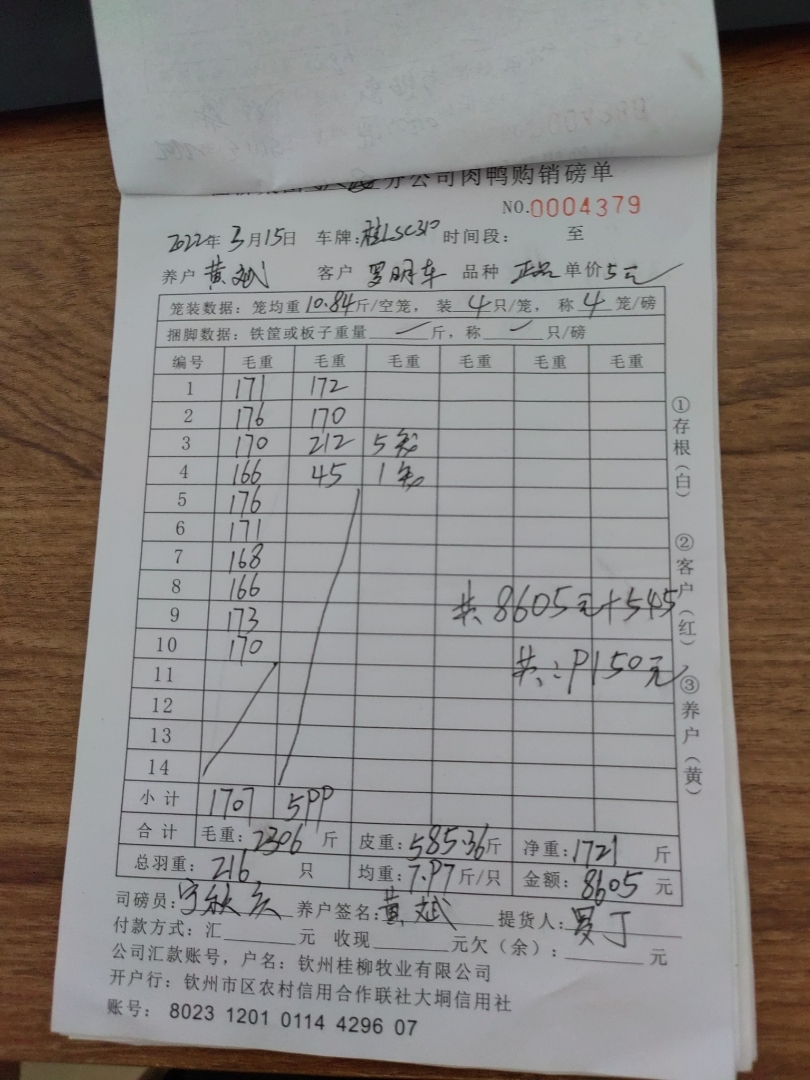 分公司肉鸭购销磅单
NO.0004379
2022年3月15日 车牌:桂LSC310 时间段: 至
养户 黄斌 客户 罗明车 品种 正品 单价5元
笼装数据:笼均重10.84斤/空笼, 装4只/笼, 称4笼/磅
捆脚数据:铁筐或板子重量 一 斤, 称 一 只/磅
编号 毛重 毛重 毛重 毛重 毛重 毛重
1 171 172
2 176 170
3 170 212 5笼
4 166 45 1笼
5 176
6 171
7 168
8 166
9 173
10 170
11
12
13
14
共、8605元+545
共、:9150元
小计 1707 599
合计 毛重:2306斤 皮重:585.36斤 净重:1721斤
总羽重:216只 均重:7.97斤/只 金额:8605元
司磅员: 养户签名:黄斌 提货人:罗丁
付款方式:汇 元 收现 元欠(余): 元
公司汇款账号,户名:钦州桂柳牧业有限公司
开户行:钦州市区农村信用合作联社大垌信用社
账号: 8023 1201 0114 4296 07
①存根(白) ②客户(红) ③养户(黄)